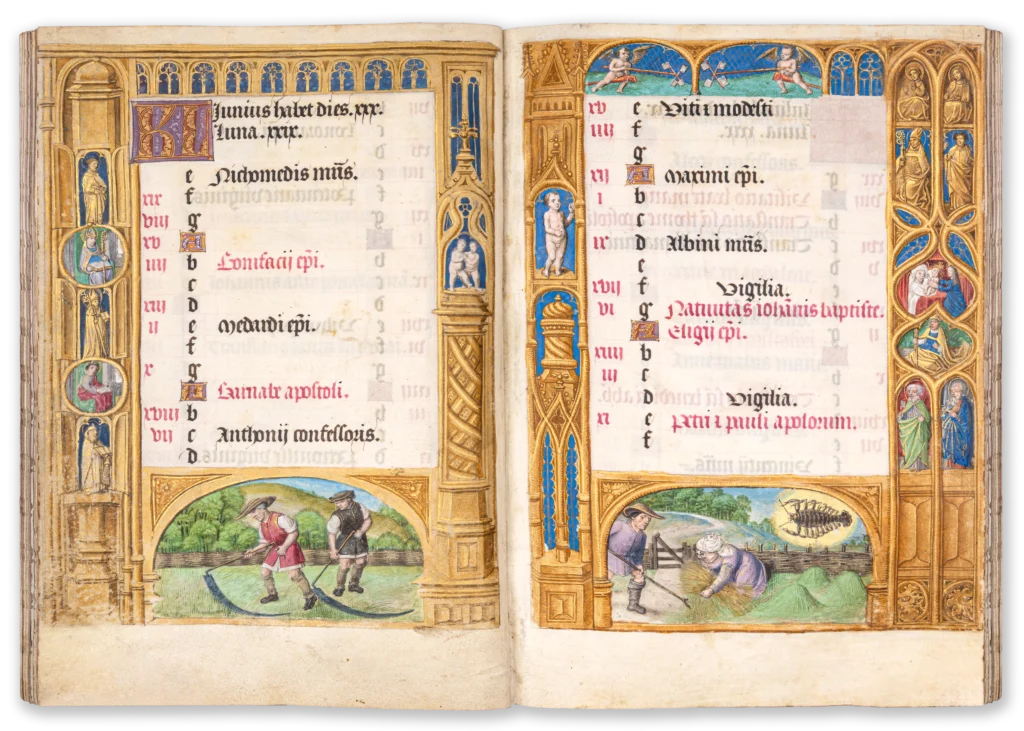 Kl Iunius habet dies .xxx.
luna .xxix.
e Nichomedis mr̄is.
xix f
viij g
xv A
iiij b Bonifacij ep̄i.
c
xiij d
ij e Medardi ep̄i.
f
x g
A Barnabe apostoli.
xviij b
vij c Anthonij confessoris.
d
xv e Viti ⁊ modesti
iiij f
g
xij A Maximi ep̄i.
i b
c
ix d Albini mr̄is.
e
xvij f Vigilia.
vi g Natiuitas iohānis baptiste.
A Eligij ep̄i.
xiiij b
iij c
d Vigilia.
xi e Petri ⁊ pauli apostolorum.
f